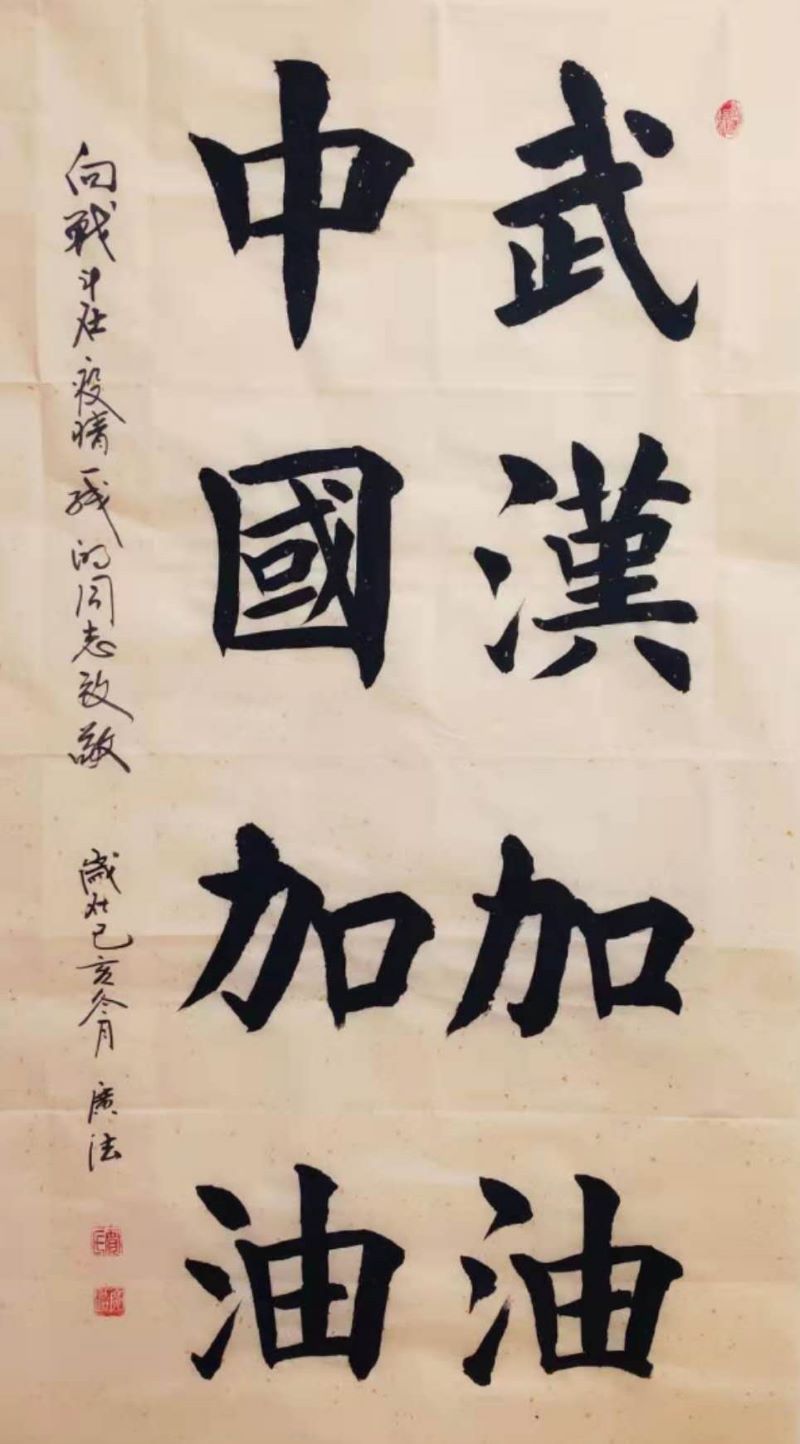 武漢加油
中國加油
向戰斗在疫情一线的同志致敬
歲在己亥冬月 廣法